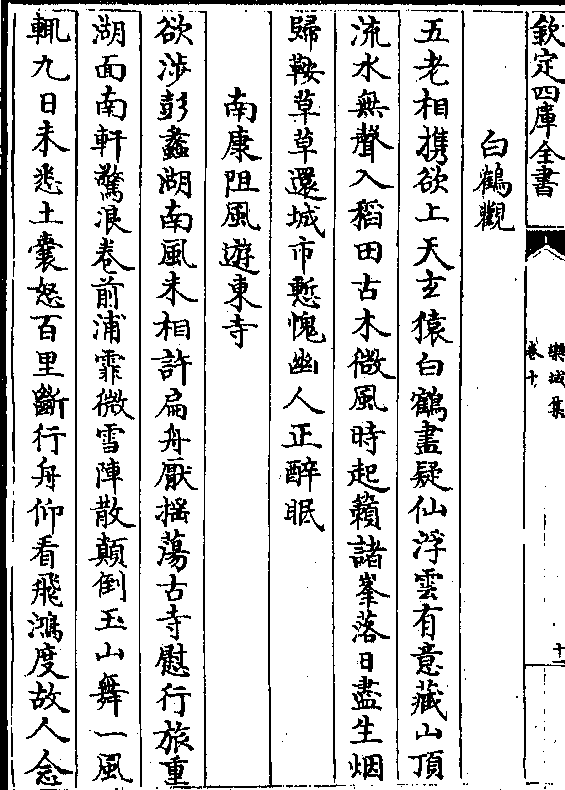 欽定四庫全書
欒城集
卷十
十一
白鶴觀
五老相攜欲上天玄猿白鶴盡疑仙浮雲有意藏山頂
流水無聲入稻田古木微風時起籟諸峯落日盡生烟
歸鞍草草還城市慙愧幽人正醉眠
南康阻風遊東寺
欲渉彭蠡湖南風未相許扁舟厭揺蕩古寺慰行旅重
湖面南軒驚浪卷前浦霏微雪陣散顛倒玉山舞一風
輒九日未悉土囊怒百里斷行舟仰看飛鴻度故人念